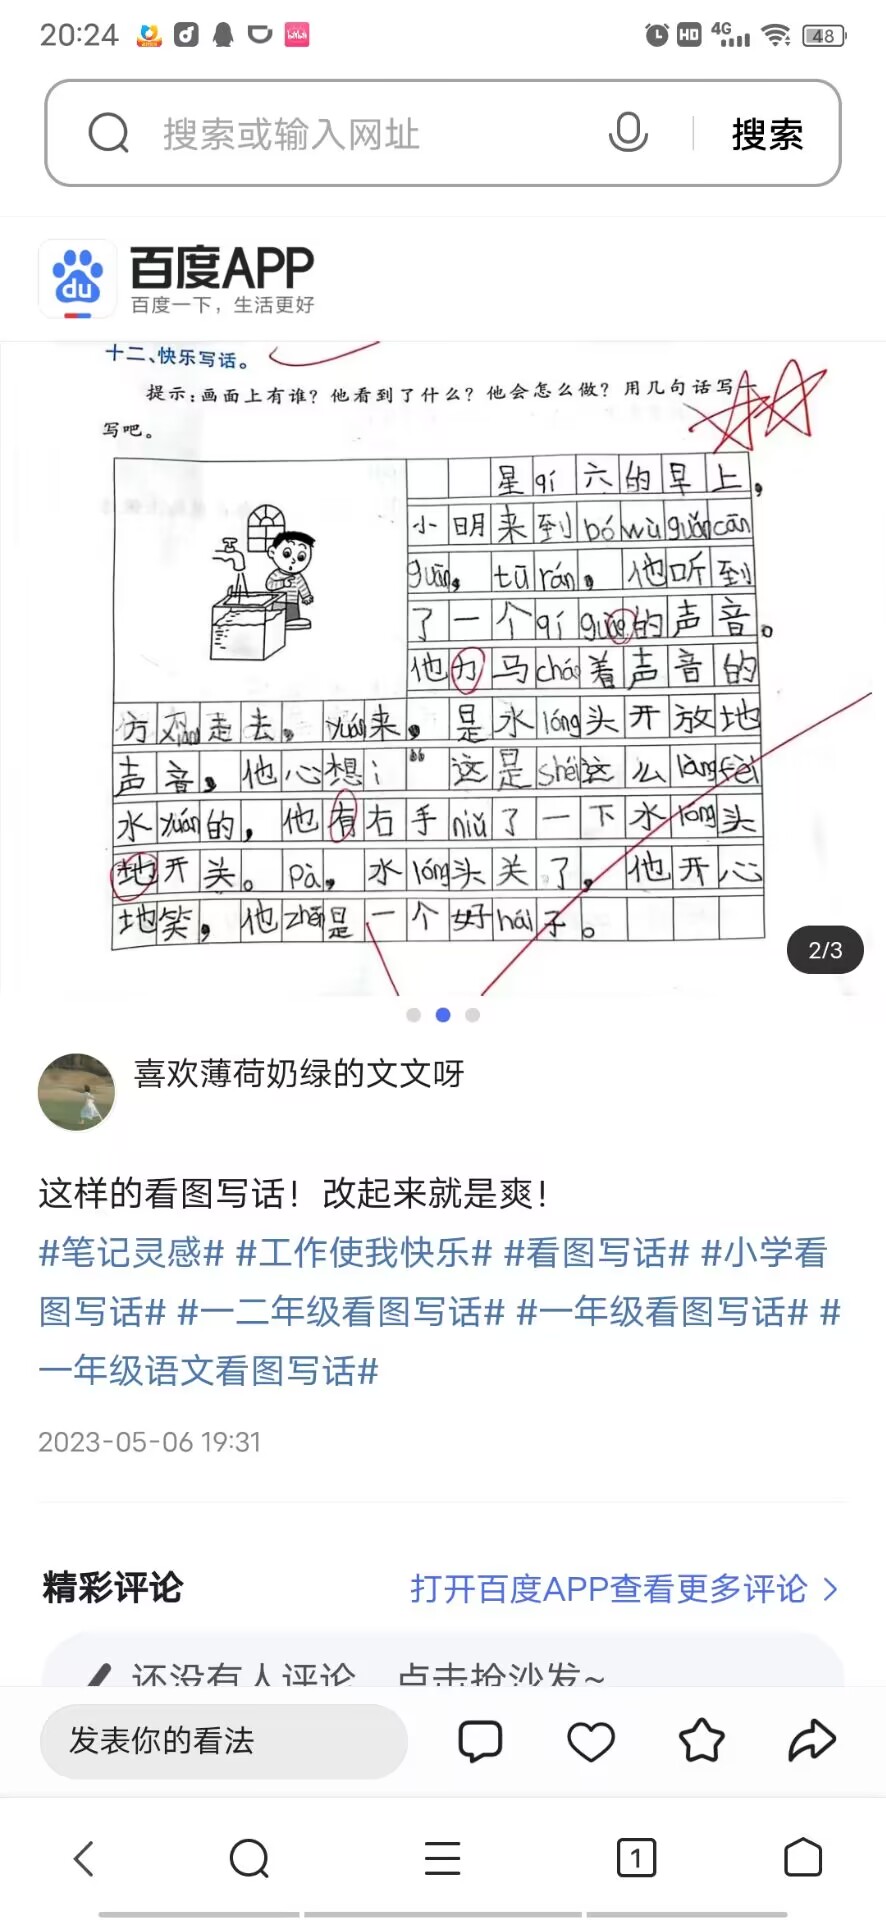 20:24
HD 4G 48
搜索或输入网址
搜索
du
百度APP
百度一下，生活更好
十二、快乐写话。
提示：画面上有谁？他看到了什么？他会怎么做？用几句话写一
写吧。
星qí六的早上，
小明来到bó wù guǎn cān
guān，tū rán，他听到
了一个qí guài的声音。
他力马cháo着声音的
方xiàng走去。yuán来，是水lóng头开放地
声音，他心想：“这是shéi这么làng fèi
水yuán的，他有右手niǔ了一下水lóng头
地开关。pà，水lóng头关了，他开心
地笑，他zhēn是一个好hái子。
2/3
喜欢薄荷奶绿的文文呀
这样的看图写话！改起来就是爽！
#笔记灵感# #工作使我快乐# #看图写话# #小学看
图写话# #一二年级看图写话# #一年级看图写话# #
一年级语文看图写话#
2023-05-06 19:31
精彩评论
打开百度APP查看更多评论
还没有人评论，点击抢沙发~
发表你的看法
1